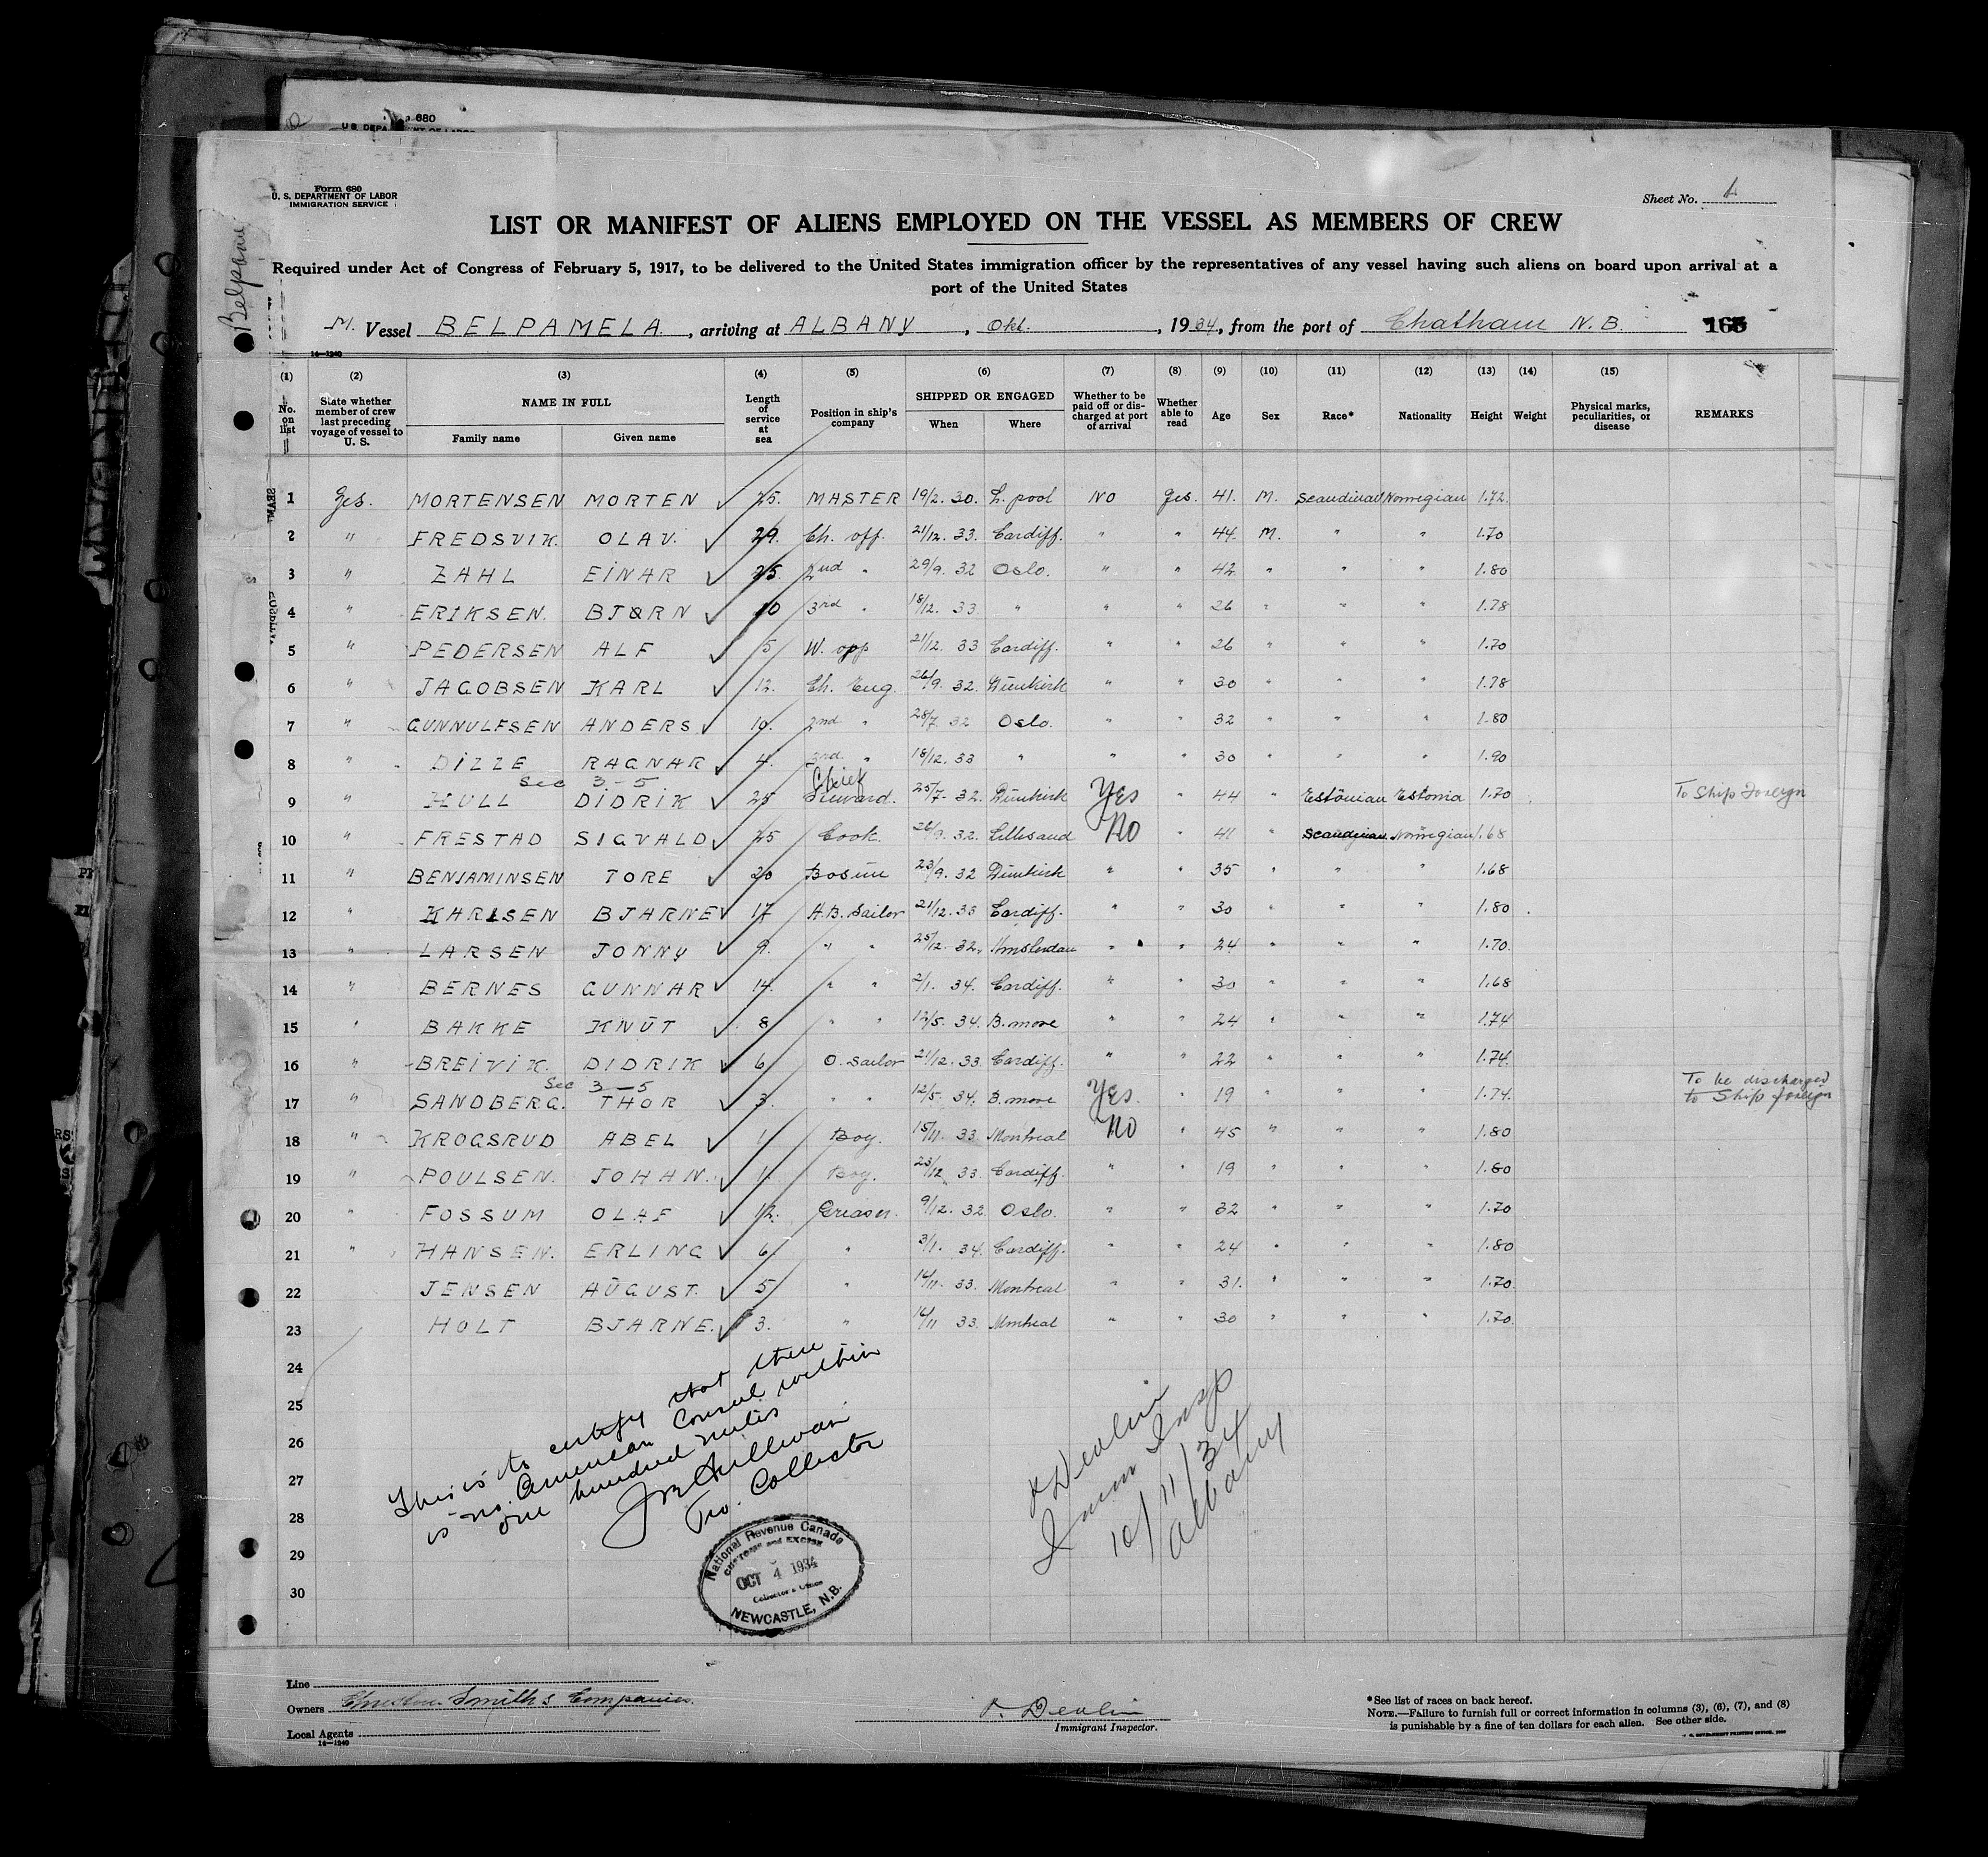 680
Form 680
U. S. DEPARTMENT OF LABOR
IMMIGRATION SERVICE
Sheet No. 1
LIST OR MANIFEST OF ALIENS EMPLOYED ON THE VESSEL AS MEMBERS OF CREW
Required under Act of Congress of February 5, 1917, to be delivered to the United States immigration officer by the representatives of any vessel having such aliens on board upon arrival at a
port of the United States
M. Vessel BELPAMELA, arriving at ALBANY, Okt., 1934, from the port of Chatham N. B.
14—1240
(1) No. on list (2) State whether member of crew last preceding voyage of vessel to U. S. (3) NAME IN FULL Family name Given name (4) Length of service at sea (5) Position in ship's company (6) SHIPPED OR ENGAGED When Where (7) Whether to be paid off or discharged at port of arrival (8) Whether able to read (9) Age (10) Sex (11) Race* (12) Nationality (13) Height (14) Weight (15) Physical marks, peculiarities, or disease REMARKS
1 Yes. MORTENSEN MORTEN 25. MASTER 19/2. 30. L. pool NO Yes. 41. M. Scandinav Norwegian 1.72
2 " FREDSVIK. OLAV. 29. Ch. off. 21/12. 33. Cardiff. " " 44. M. " " 1.70
3 " ZAHL EINAR 25. 2nd " 29/9. 32 Oslo. " " 42 " " " 1.80
4 " ERIKSEN. BJØRN 10 3rd " 18/12. 33 " " " 26 " " " 1.78
5 " PEDERSEN ALF 5 W. opp 21/12. 33 Cardiff. " " 26 " " " 1.70
6 " JACOBSEN KARL 12. Ch. Eng. 26/9. 32. Dünkirk " " 30 " " " 1.78
7 " GUNNULFSEN ANDERS 10. 2nd " 28/7 32 Oslo. " " 32 " " " 1.80
8 " DIZZE RAGNAR 4. 3rd. " 18/12. 33 " " " 30 " " " 1.90
Sec 3-5 Chief
9 " HULL DIDRIK 25 Steward. 25/7- 32. Dünkirk Yes " 44 " Estonian Estonia 1.70 To Ship Foreign
10 " FRESTAD SIGVALD 25 Cook. 26/9. 32. Lillesand No " 41 " Scandinav Norwegian 1.68
11 " BENJAMINSEN TORE 20 Bosün 23/9. 32 Dünkirk " " 35 " " " 1.68
12 " KARLSEN BJARNE 17 A.B. Sailor 21/12. 33 Cardiff. " " 30 " " " 1.80
13 " LARSEN JONNY 9. " " 25/12. 32. " " 24 " " " 1.70.
14 " BERNES GUNNAR 14. " " 2/1. 34. Cardiff. " " 30 " " " 1.68
15 " BAKKE KNÜT 8 " " 12/5. 34. B. more " " 24 " " " 1.74
16 " BREIVIK. DIDRIK 6 O. sailor 21/12. 33. Cardiff. " " 22 " " " 1.74.
Sec 3-5 To be discharged
17 " SANDBERG. THOR 3. " " 12/5. 34. B. more Yes. " 19 " " " 1.74. to Ship foreign
18 " KROGSRUD ABEL 1 Boy. 15/11. 33 Montreal No " 45 " " " 1.80
19 " POULSEN. JOHAN. 1. Boy. 23/12 33. Cardiff. " " 19 " " " 1.80
20 " FOSSUM OLAF 12. Greaser. 9/12. 32 Oslo. " " 32 " " " 1.70
21 " HANSEN. ERLING 6 " 3/1. 34. Cardiff. " " 24 " " " 1.80
22 JENSEN AUGUST. 5 " 14/11. 33. Montreal " " 31. " " " 1.70.
23 HOLT BJARNE. 3. " 14/11 33. Montreal " " 30 " " " 1.70.
24
25
26
27
28
29
30
This is to certify that there
is no American Consul within
one hundred miles
Collector
National Revenue Canada
CUSTOMS and EXCISE
OCT 4 1934
Collector's Office
NEWCASTLE, N.B.
Devlin
Imm Insp
10/11/34
Albany
Line
Owners Smith's Companies.
Local Agents
14—1240
Devlin
Immigrant Inspector.
*See list of races on back hereof.
NOTE.—Failure to furnish full or correct information in columns (3), (6), (7), and (8)
is punishable by a fine of ten dollars for each alien. See other side.